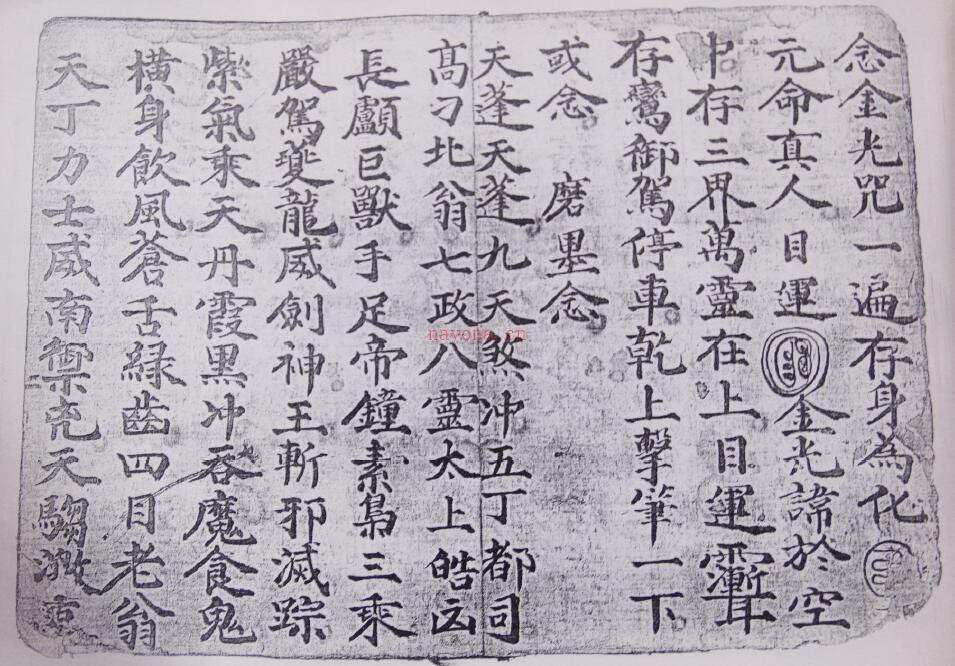 念金光咒一遍存身為化
元命真人目運金光諦於空
中存三界萬靈在上目運聻
存鸞御駕停車乾上擊筆一下
或念 磨墨念
天蓬天蓬九天煞冲五丁都司
高刁北翁七政八靈太上皓凶
長顱巨獸手足帝鐘素梟三乘
嚴駕夔龍威劍神王斬邪滅踪
紫氣乘天丹霞黑冲吞魔食鬼
橫身飲風蒼舌緑齒四目老翁
天丁力士威南禦兇天騶激
nayona.cn